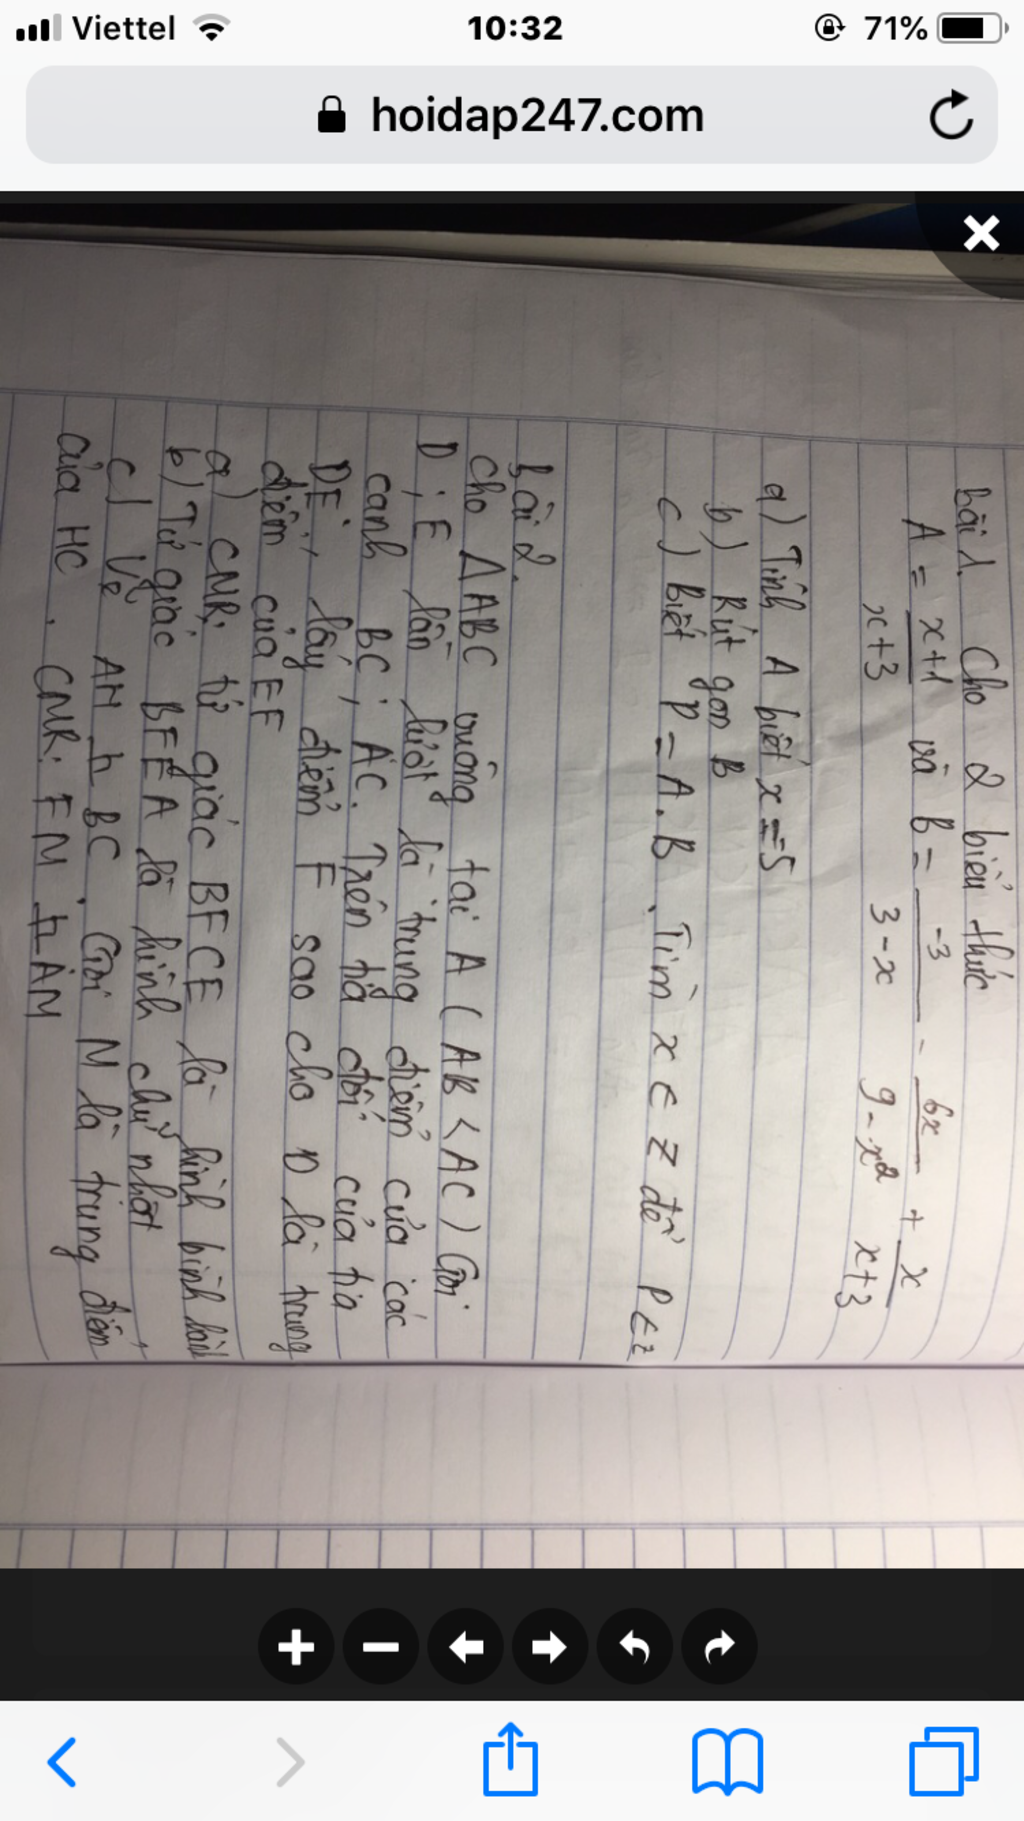 Viettel 10:32 71%
hoidap247.com
Bài 1. Cho 2 biểu thức
A = x+1/x+3 và B = -3/3-x - 6x/9-x² + x/x+3
a) Tính A biết x = 5
b) Rút gọn B
c) Biết P = A.B. Tìm x ∈ Z để P ∈ Z
Bài 2.
Cho ΔABC vuông tại A (AB < AC) Gọi
D; E lần lượt là trung điểm của các
cạnh BC; AC. Trên tia đối của tia
DE, lấy điểm F sao cho D là trung
điểm của EF
a) CMR: tứ giác BFCE là hình bình hành
b) Tứ giác BFEA là hình chữ nhật
c) Vẽ AH ⊥ BC. Gọi M là trung điểm
của HC. CMR: FM ⊥ AM